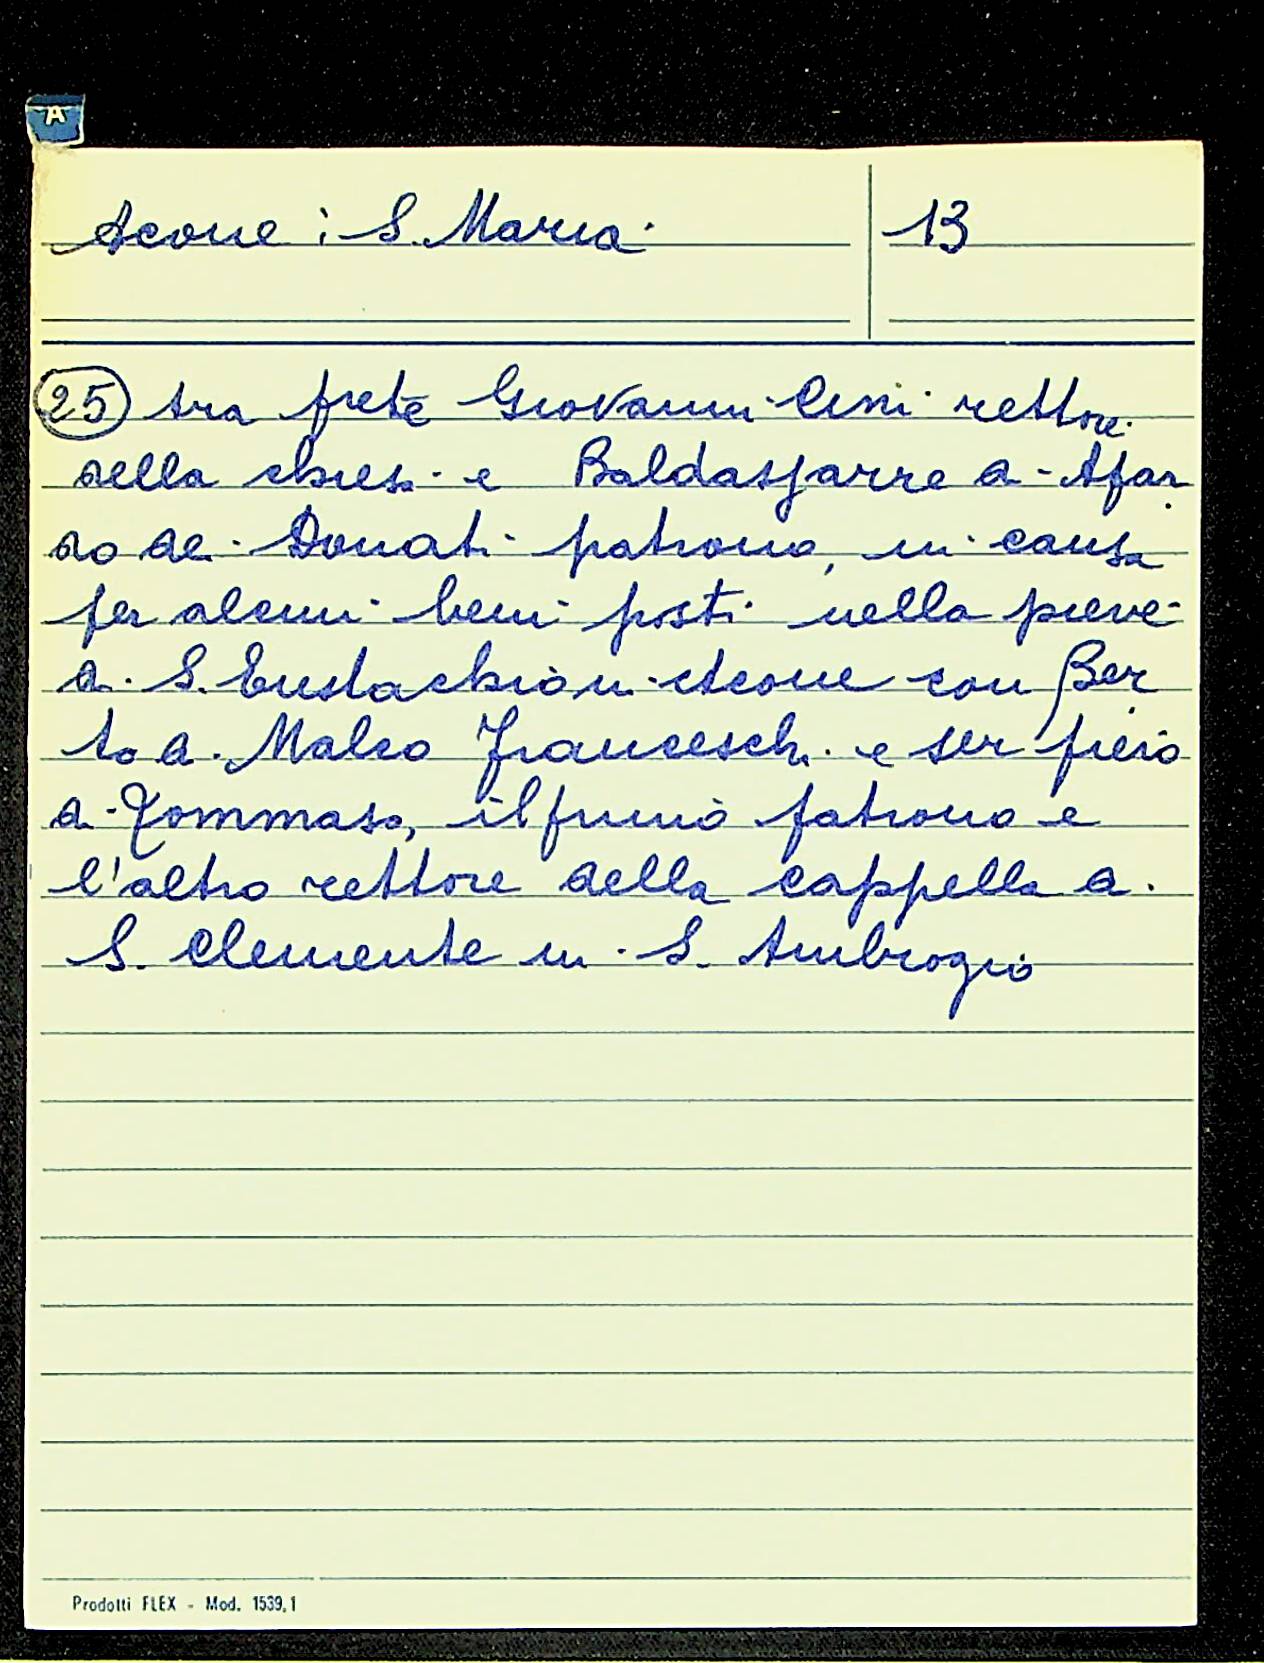 A
Acone : S. Maria 13
25 tra prete Giovanni Cini rettore
della chiesa e Baldassarre di
de Donati patrono, in causa
per alcuni beni posti nella pieve
di S. Eustachio in Acone con Ber
to di Franceschi e ser Piero
di Tommaso, il primo patrono e
l'altro rettore della cappella di
S. Clemente in S. Ambrogio
Prodotti FLEX - Mod. 1539,1